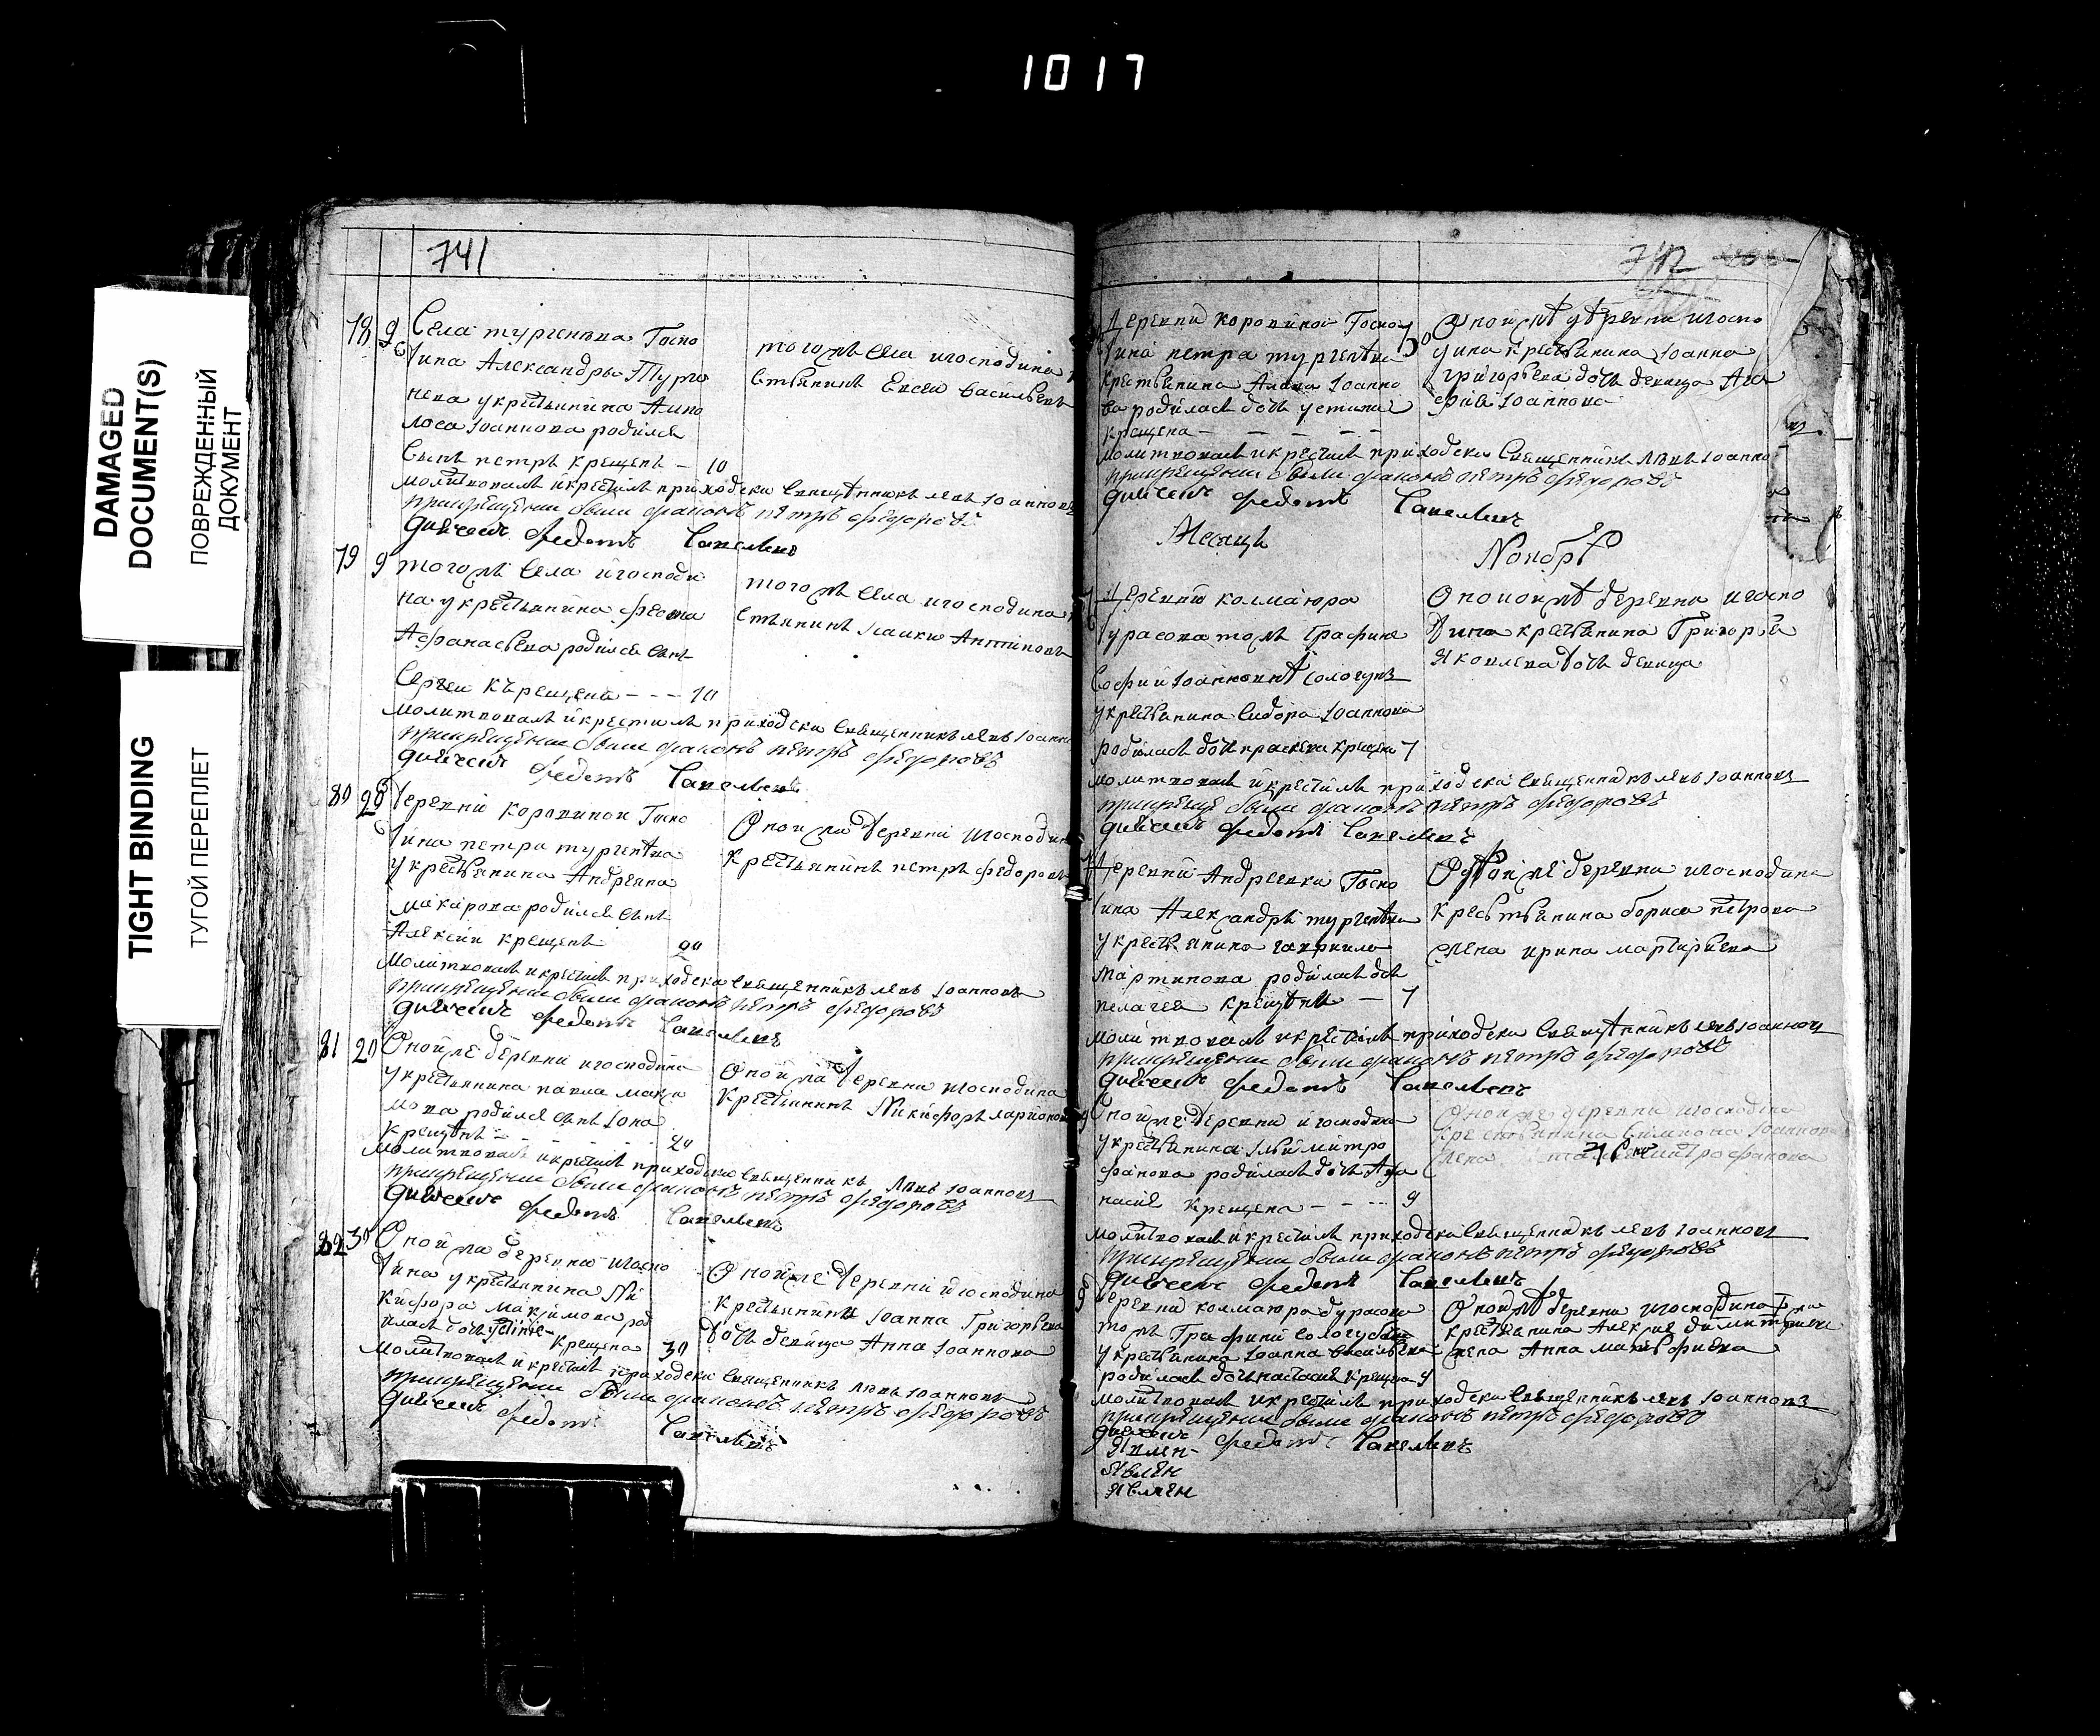 1017
DAMAGED
DOCUMENT(S)
ПОВРЕЖДЕННЫЙ
ДОКУМЕНТ
TIGHT BINDING
ТУГОЙ ПЕРЕПЛЕТ
741
78 9 Села тургенѣва Госпо
дина Александры Турге
нева у крестьянина Амо
лоса Iоаннова родилсѧ
Сынъ петръ крещенъ – 10
тогожъ села игосподина
Евсеи Васильевъ
молитвовалъ икрестилъ приходски Священникъ левъ Iоанновъ
при крещени были диаконъ петръ федоровъ
дьячекъ федотъ Савельевъ
79 9 тогожъ села игосподи
на у крестьянина
Афанасьева родилсѧ сынъ
Сергеи крещенъ – – – 10
тогожъ села игосподина
молитвовалъ икрестилъ приходски Священникъ левъ Iоаннов
при крещени были диаконъ петръ федоровъ
дьячекъ федотъ Савельевъ
80 20 Деревни коровинои Госпо
дина петра тургенѣва
у крестьянина Андреяна
макарова родилсѧ сынъ
Алексѣи крещенъ 20
Онои жа деревни игосподин
крестьянинъ петръ федоровъ
молитвовалъ икрестилъ приходски Священникъ левъ Iоанновъ
при крещени были диаконъ петръ федоровъ
дьячекъ федотъ Савельевъ
81 20 Онои же деревни игосподина
у крестьянина павла макси
мова родилсѧ сынъ Iона
крещенъ – – – 20
Онои жа деревни игосподина
крестьянинъ Никифоръ ларионов
молитвовалъ икрестилъ приходски Священникъ левъ Iоанновъ
при крещени были диаконъ петръ федоровъ
дьячекъ федотъ Савельевъ
82 30 Онои жа деревни игоспо
дина у крестьянина Ни
кифора Максимова род
илась дочь
крещена 30
Онои же деревни игосподина
крестьянина Iоанна Григорьева
дочь девица Анна Iоаннова
молитвовалъ икрестилъ приходски Священникъ левъ Iоанновъ
при крещени были диаконъ петръ федоровъ
дьячекъ федотъ Савельевъ
742
Деревни коровинои Госпо
дина петра тургенѣва
крестьянина Iоанно
ва родилась дочь устинья
крещена – – – – –
30
Онои жѣ деревни игоспо
дина крестьянина Iоанна
григорьева дочь девица Ага
фия Iоаннова
молитвовалъ икрестилъ приходски Священникъ левъ Iоанно
при крещени были диаконъ петръ федоровъ
дьячекъ федотъ Савельевъ
Месяцъ Ноябрь
Деревни колмаюра
Дурасова тожъ Графине
Софии Iоанновнѣ Сологубъ
у крестьянина Сидора Iоаннова
родилась дочь праскева крещена 7
Онои жѣ деревни игоспо
дина крестьянина Григорья
Яковлева дочь девица
молитвовалъ икрестилъ приходски Священникъ левъ Iоанновъ
при креще были диаконъ петръ федоровъ
дьячекъ федотъ Савельевъ
Деревни Андреевки Госпо
дина Александры тургенѣва
у крестьянина гаврила
мартинова родилась дочь
пелагея крещѣна – 7
Онои же деревни игосподина
крестьянина бориса петрова
жена ирина мартирьева
молитвовалъ икрестилъ приходски Священникъ левъ Iоаннов
при крещени были диаконъ петръ федоровъ
дьячекъ федотъ Савельевъ
Онои же деревни игосподина
у крестьянина Ильи митро
фанова родилась дочь Ана
стасия крещена – – – 9
Онои же деревни игосподина
крестьянина Симиона Iоаннова
жена митрофанова
молитвовалъ икрестилъ приходски Священникъ левъ Iоанновъ
при крещени были диаконъ петръ федоровъ
дьячекъ федотъ Савельевъ
9 Деревни колмаюра дурасова
тожъ Графини Сологубъ
у крестьянина Iоанна Васильева
родилась дочь настасия крещена 9
Онои жѣ деревни игосподина
крестьянина Алексѣя димитриева
жена Анна
молитвовалъ икрестилъ приходски Священникъ левъ Iоанновъ
при крещени были диаконъ петръ федоровъ
дьячекъ федотъ Савельевъ
Явлен
Явлен
Явлен